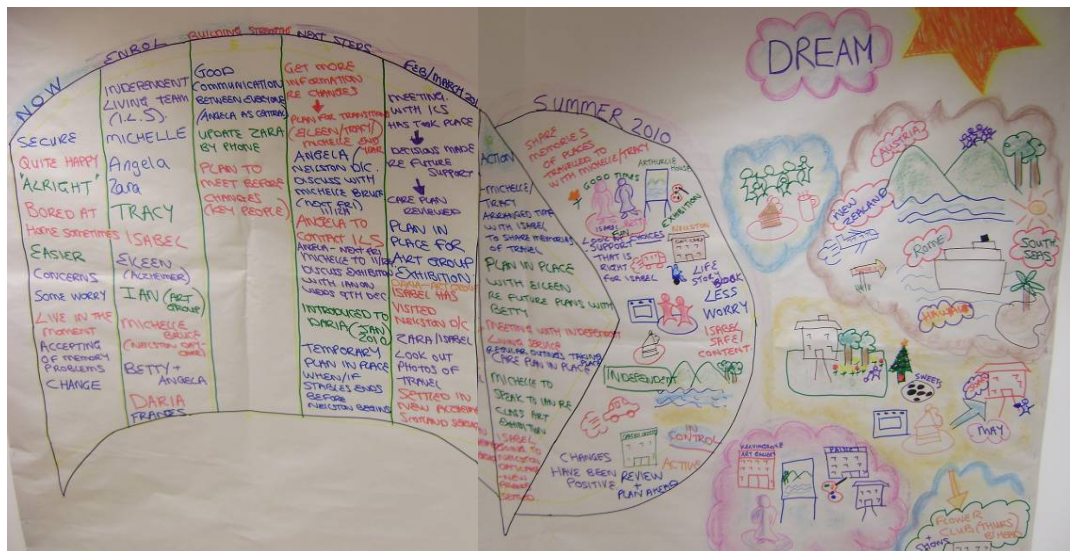 NOW
SECURE
QUITE HAPPY
"ALRIGHT"
BORED AT
HOME SOMETIMES
EASIER
CONCERNS
SOME WORRY
LIVE IN THE
MOMENT
ACCEPTING
OF MEMORY
PROBLEMS
CHANGE
ENROL
INDEPENDENT
LIVING TEAM
(I.L.S).
MICHELLE
Angela
Zara
TRACY
ISABEL
EILEEN
(ALZHEIMER)
IAN (ART
GROUP)
MICHELLE
BRUCE
(NEILSTON DAY
CARE)
BETTY +
ANGELA
DARIA
FRANCES
BUILDING STRENGTHS
GOOD
COMMUNICATION
BETWEEN EVERYONE
(ANGELA AS CENTRAL)
UPDATE ZARA
BY PHONE
PLAN TO
MEET BEFORE
CHANGES
(KEY PEOPLE)
NEXT STEPS
GET MORE
INFORMATION
RE CHANGES
PLAN FOR TRANSITION
(EILEEN/TRACY)
MICHELLE END
YEAR
ANGELA /
NEILSTON D/C.
DISCUSS WITH
MICHELLE BRUCE
(NEXT FRI)
11/12/09
ANGELA TO
CONTACT ILS
ANGELA - NEXT FRI
MICHELLE TO
DISCUSS EXHIBITION
WITH IAN ON
WEDS 9TH DEC
INTRODUCED TO
DARIA (JAN
2010)
TEMPORARY
PLAN IN PLACE
WHEN/IF
STABLES ENDS
BEFORE
NEILSTON BEGINS
FEB/MARCH
MEETING.
WITH ILS
HAS TOOK PLACE
DECISIONS MADE
RE FUTURE
SUPPORT
CARE PLAN
REVIEWED
PLAN IN
PLACE FOR
ART GROUP
EXHIBITION
DARIA - ART GROUP
ISABEL HAS
VISITED
NEILSTON D/C
ZARA/ISABEL
LOOK OUT
PHOTOS OF
TRAVEL
SETTLED IN
NEW
SCOTLAND
ACTION
MICHELLE/
TRACY
ARRANGED TIME
WITH ISABEL
TO SHARE MEMORIES
OF TRAVEL
PLAN IN PLACE
WITH EILEEN
RE FUTURE PLANS WITH
BETTY
MEETING WITH INDEPENDENT
LIVING SERVICE
REGULAR OUTINGS TAKING
PLACE
CARE PLAN IN PLACE
MICHELLE TO
SPEAK TO IAN RE
CLASS ART
EXHIBITION
ISABEL
GOING TO
NEILSTON
SUMMER 2010
SHARE
MEMORIES
OF PLACES
TRAVELLED TO
WITH MICHELLE/TRACY
ARTHURLIE HOUSE
GOOD TIMES
ISABEL
BETTY
EXHIBITION
FUN
CHOICES
SUPPORT
THAT IS
RIGHT
FOR ISABEL
NEILSTON
DAY CARE
LIFE
STORY BOOK
LESS
WORRY
ISABEL
SAFE/
CONTENT
INDEPENDENT
IN
CONTROL
ACTIVE
CHANGES
HAVE BEEN
POSITIVE
REVIEW
+
PLAN AHEAD
DREAM
AUSTRIA
NEW
ZEALAND
ROME
SOUTH
SEAS
HAWAII
SWEETS
JOAN
MAY
ART GALLERY
PAISLEY
FLOWER
CLUB (THURS)